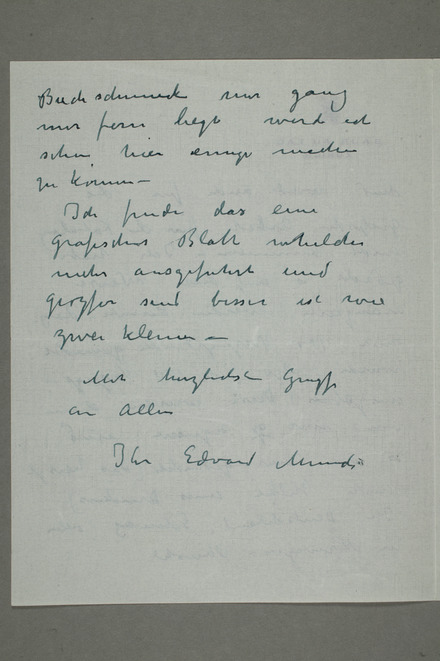 Buchschmuck mir ganz
mir fern liegt werd ich
schon hier einige machen
zu können –
Ich finde das eine
grafisches Blatt
mehr ausgeführt und
größer sind besser ist wie
zwei kleinen –
Mit herzlichsten Grüße
an Allen
Ihr Edvard Munch